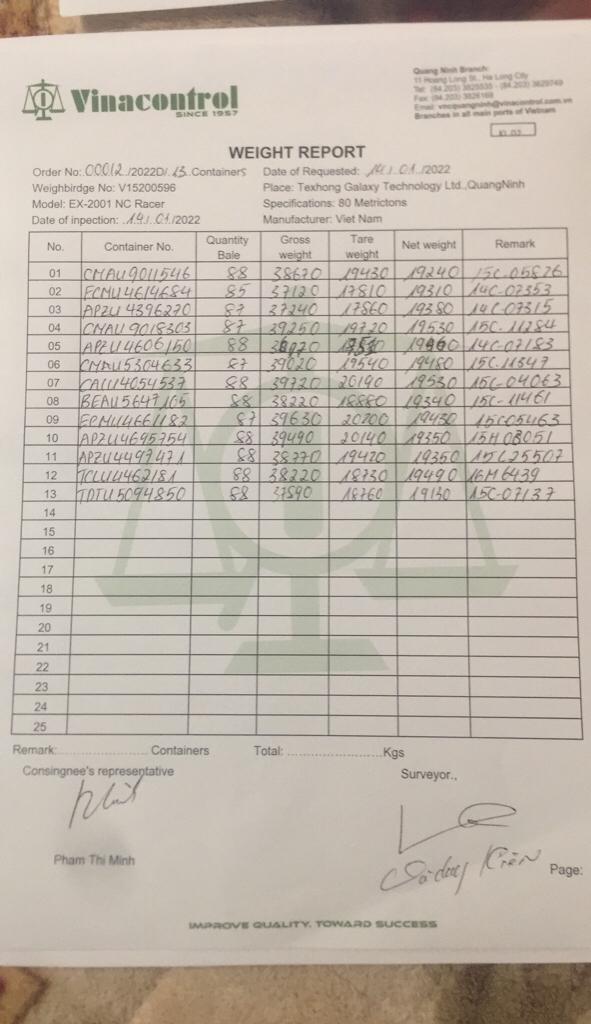 Vinacontrol
SINCE 1957
Quang Ninh Branch:
11 Hoang Long St., Ha Long City
Tel: (84.203) 3825535 - (84.203) 3829749
Fax: (84.203) 3826169
Email: vncquangninh@vinacontrol.com.vn
Branches in all main ports of Vietnam
WEIGHT REPORT
Order No: 00012./2022D/.13.Containers Date of Requested: 14./.01./2022
Weighbirdge No: V15200596 Place: Texhong Galaxy Technology Ltd.,QuangNinh
Model: EX-2001 NC Racer Specifications: 80 Metrictons
Date of inpection: .14./.01./2022 Manufacturer: Viet Nam
No. Container No. Quantity Bale Gross weight Tare weight Net weight Remark
01 CMAU9011546 88 38670 19430 19240 15C-05826
02 FCMU4614684 85 37120 17810 19310 14C-07353
03 APZU4396270 87 37240 17860 19380 14C-07315
04 CMAU9018303 87 39250 19720 19530 15C-11284
05 APZU4606150 88 14C-07183
06 CMAU5304633 87 39020 19540 19480 15C-11347
07 CAIU4054537 88 39720 20190 19530 15C-04063
08 BEAU5647105 88 38220 18880 19340 15C-11461
09 87 39630 20200 19430 15C05463
10 APZU4695754 88 39490 20140 19350 15H08051
11 APZU4497471 88 38770 19420 19350 15C25507
12 TCLU4462181 88 38220 18730 19490 16M6439
13 TDTU5094850 88 37890 18760 19130 15C-07137
14
15
16
17
18
19
20
21
22
23
24
25
Remark: Containers Total: Kgs
Consingnee's representative Surveyor.,
Pham Thi Minh
Page:
IMPROVE QUALITY, TOWARD SUCCESS